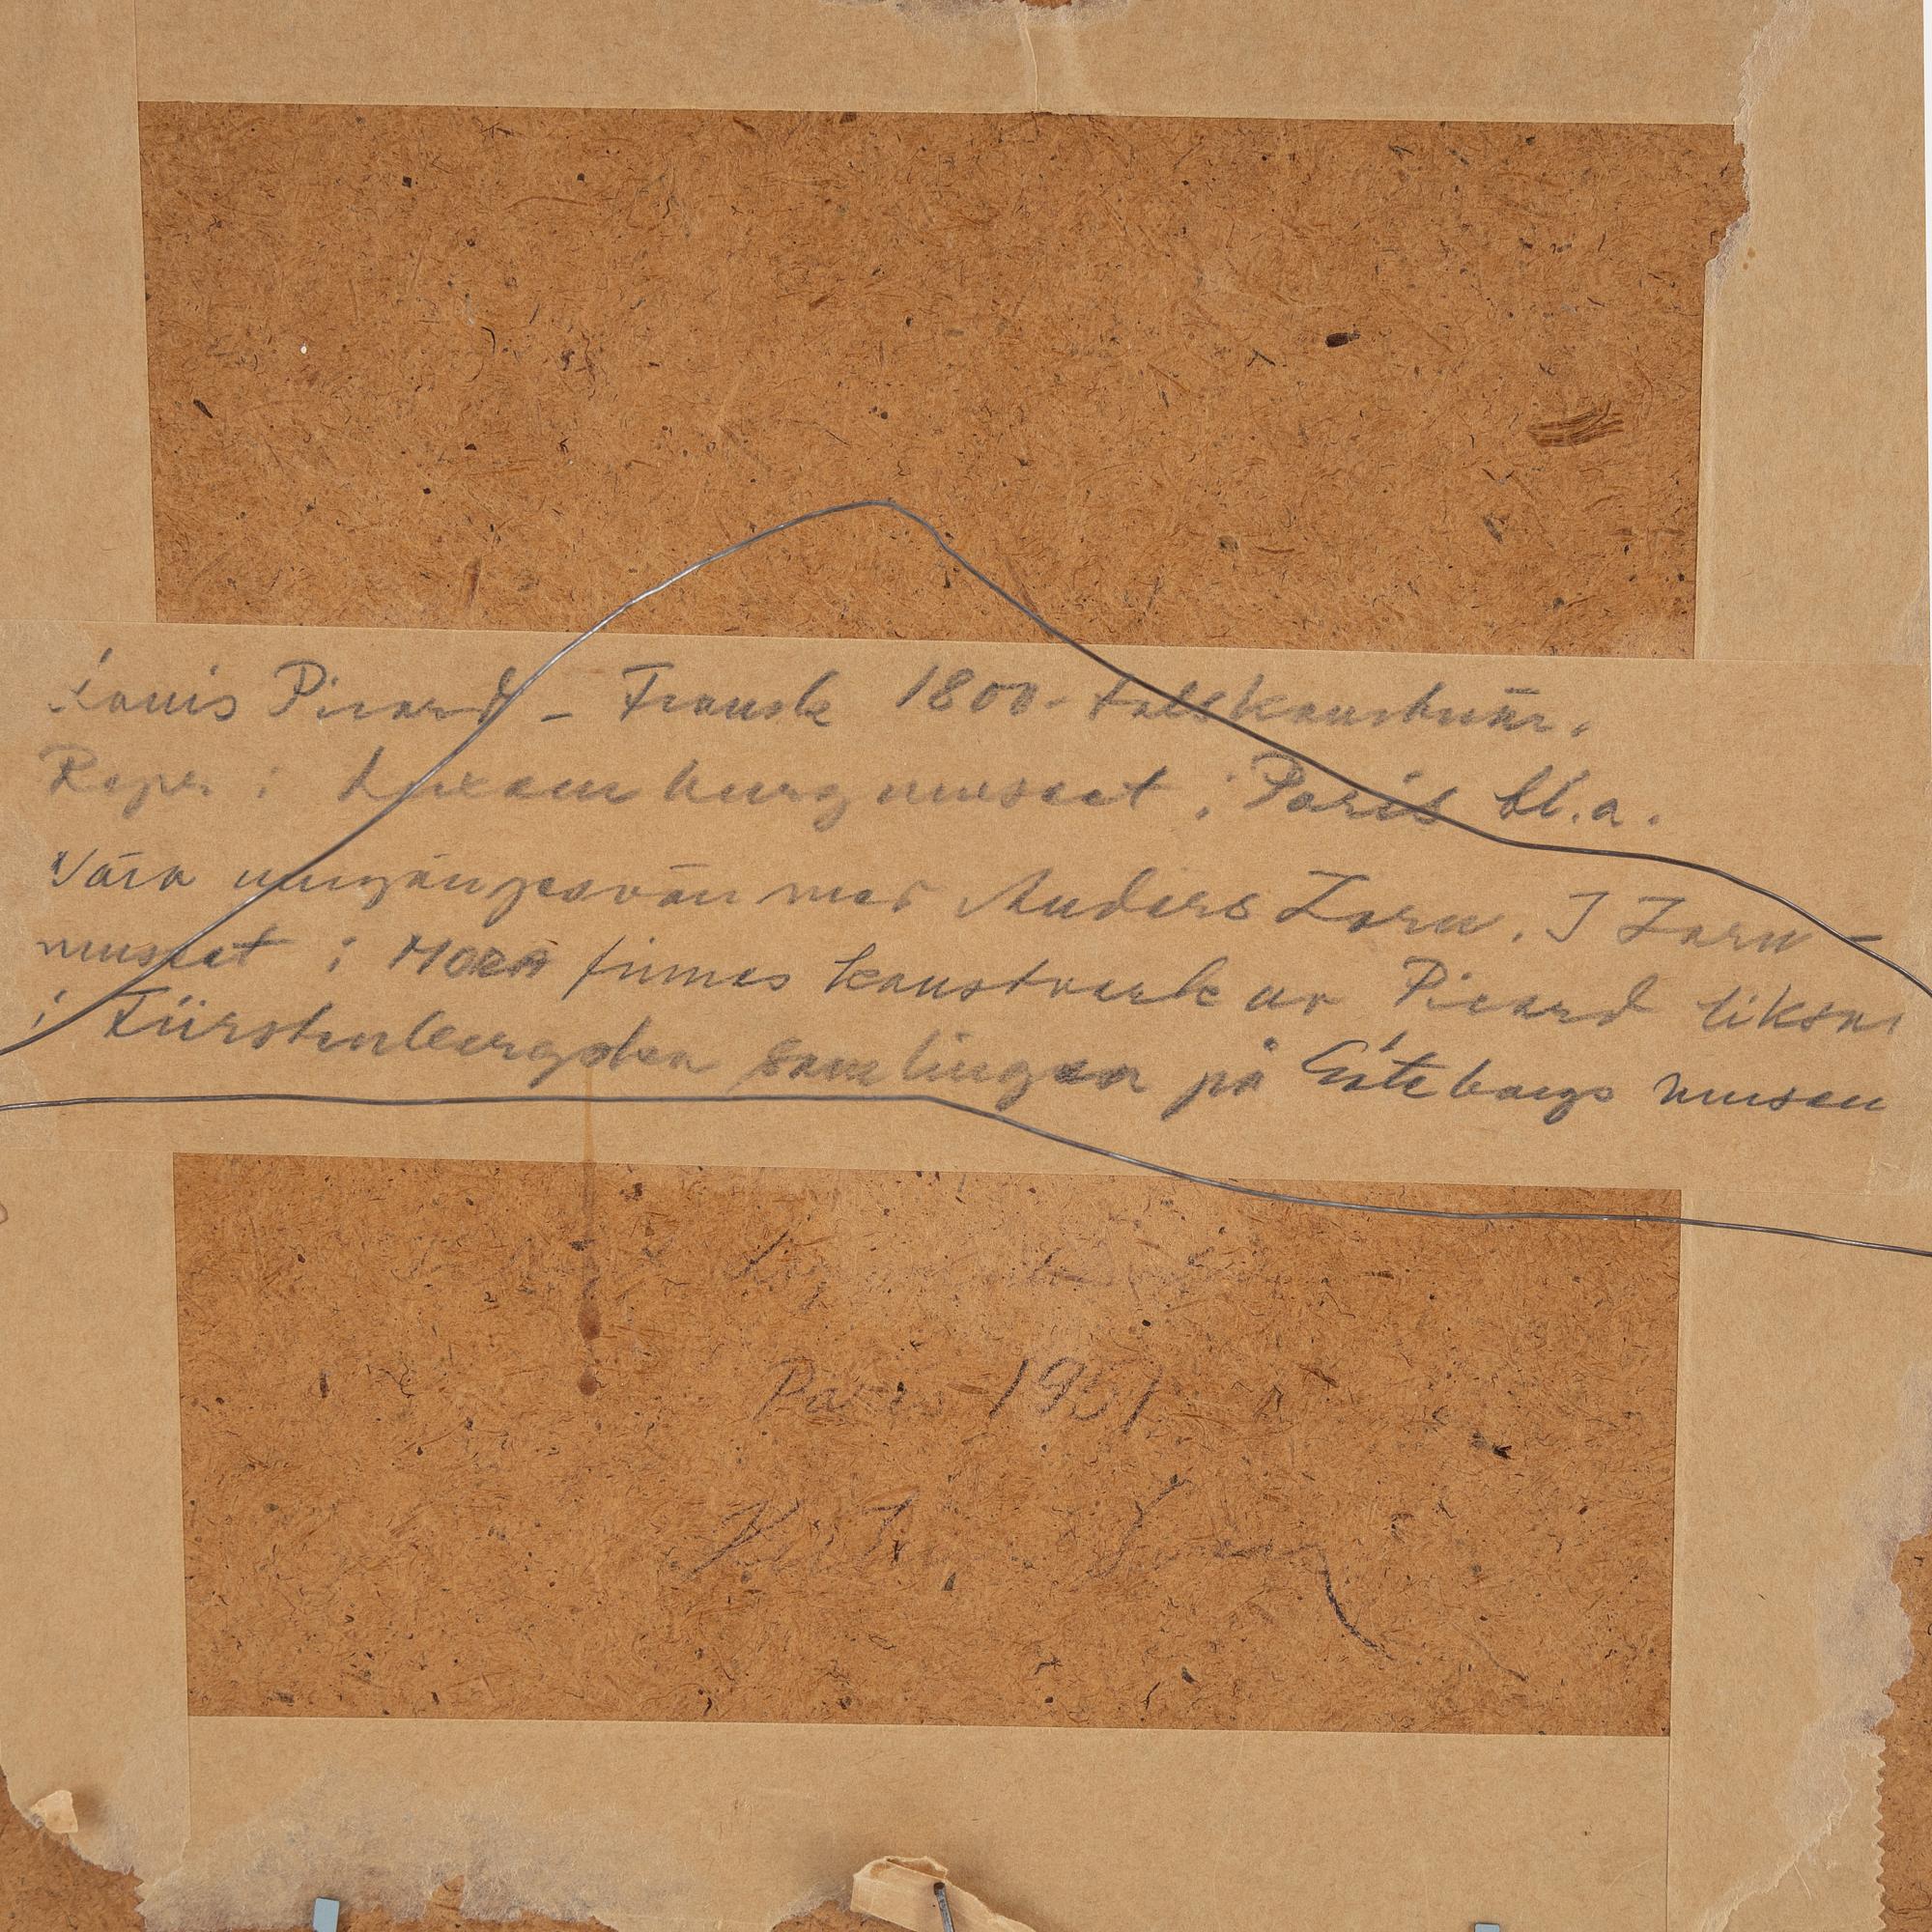 Louis Picard – Fransk 1800-talskonstnär.
Repr. i Luxemburgmuseet i Paris bl.a.
Nära umgängesvän med Anders Zorn. I Zorn-
museet i MORA finnes konstverk av Picard liksom
i Fürstenbergska samlingen på Göteborgs museum
Paris 1951